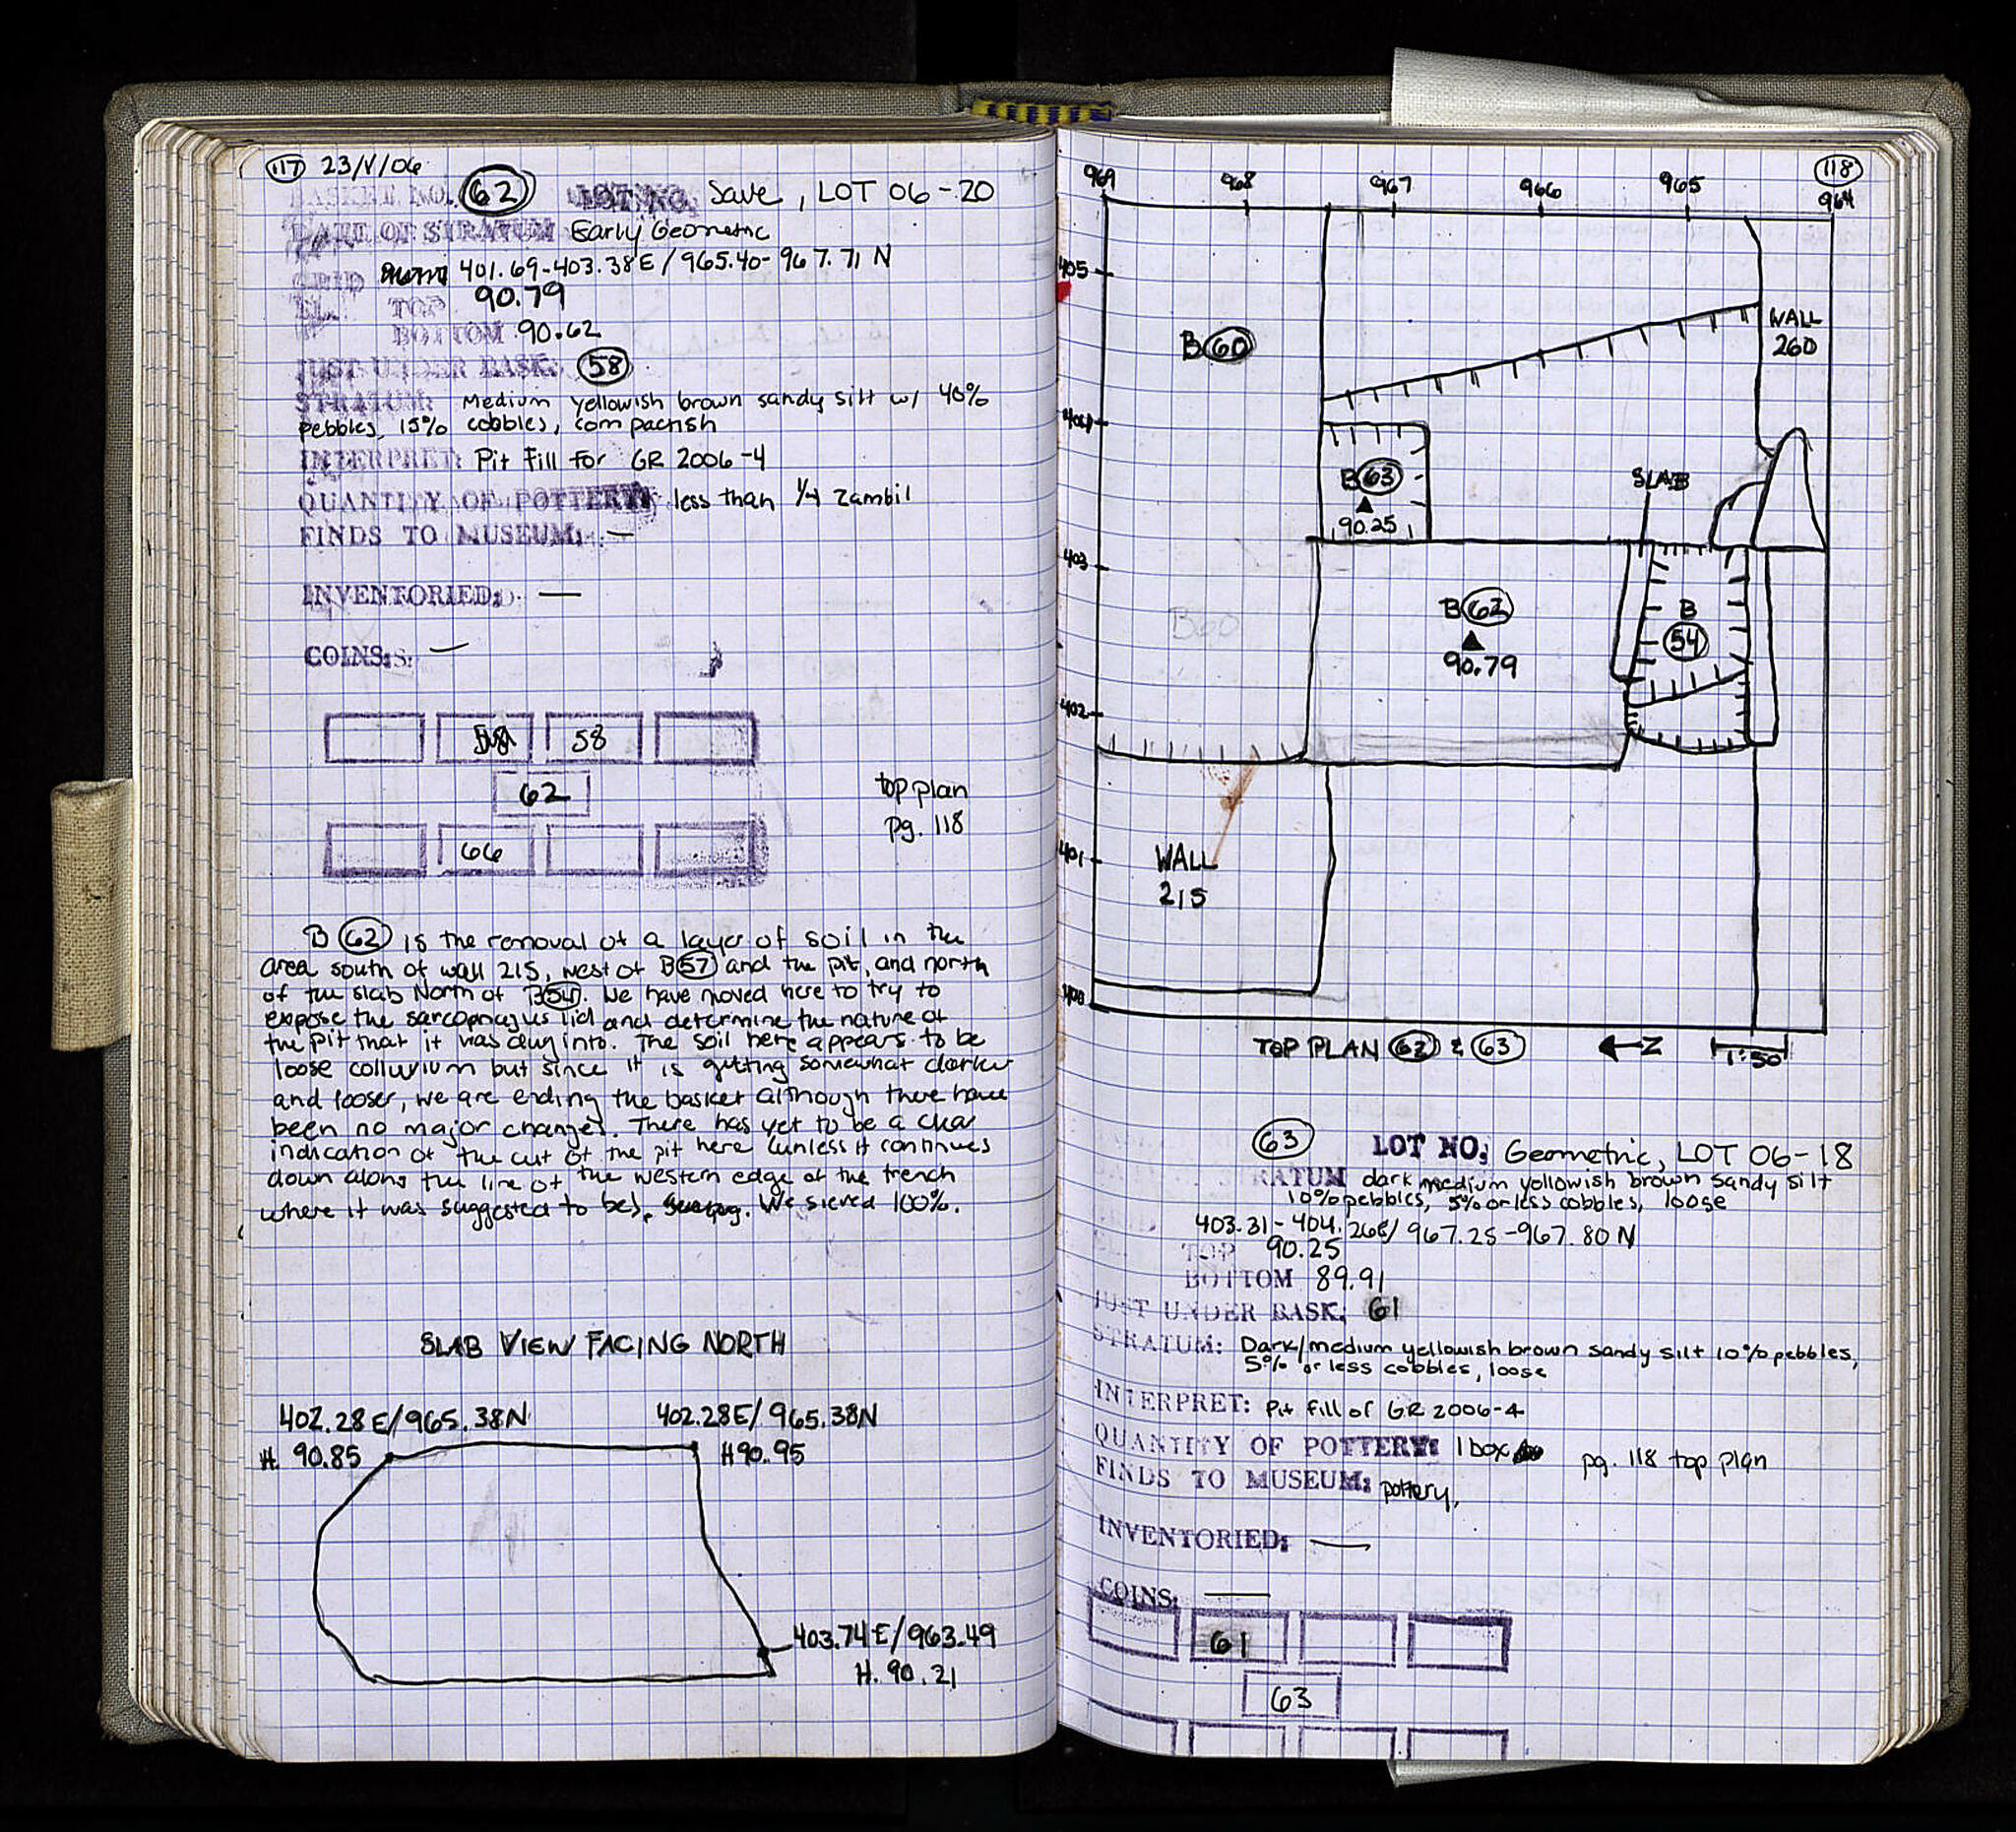 117 23/V/06
BASKET NO. 62 LOT NO. Save, LOT 06-20
DATE OF STRATUM Early Geometric
GRID 401.69-403.38E/965.40-967.71 N
EL. TOP 90.79
BOTTOM 90.62
JUST UNDER BASK: 58
STRATUM: Medium yellowish brown sandy silt w/ 40%
pebbles, 15% cobbles, compactish
INTERPRET: Pit fill for GR 2006-4
QUANTITY OF POTTERY: less than 1/4 zambil
FINDS TO MUSEUM: —
INVENTORIED: —
COINS: —
58
62
66
top plan
pg. 118
B 62 is the removal of a layer of soil in the
area south of wall 215, west of B57 and the pit, and north
of the slab North of B54. We have moved here to try to
expose the sarcophagus lid and determine the nature of
the pit that it was dug into. The soil here appears to be
loose colluvium but since it is getting somewhat darker
and looser, we are ending the basket although there have
been no major changes. There has yet to be a clear
indication of the cut of the pit here (unless it continues
down along the line of the western edge of the trench
where it was suggested to be). We sieved 100%.
SLAB VIEW FACING NORTH
402.28E/965.38N
H. 90.85
402.28E/965.38N
H 90.95
403.74E/963.49
H. 90.21
118
969 968 967 966 965 964
405
404
403
402
401
400
B 60
WALL
260
B 63
90.25
SLAB
B60
B 62
90.79
B
54
WALL
215
TOP PLAN 62 & 63
N
1:50
63 LOT NO: Geometric, LOT 06-18
STRATUM dark medium yellowish brown sandy silt
10% pebbles, 5% or less cobbles, loose
GRID 403.31-404.26E/967.25-967.80N
EL. TOP 90.25
BOTTOM 89.91
JUST UNDER BASK: 61
STRATUM: Dark/medium yellowish brown sandy silt 10% pebbles,
5% or less cobbles, loose
INTERPRET: Pit fill of GR 2006-4
QUANTITY OF POTTERY: 1 box
pg. 118 top plan
FINDS TO MUSEUM: pottery,
INVENTORIED: —
COINS: —
61
63